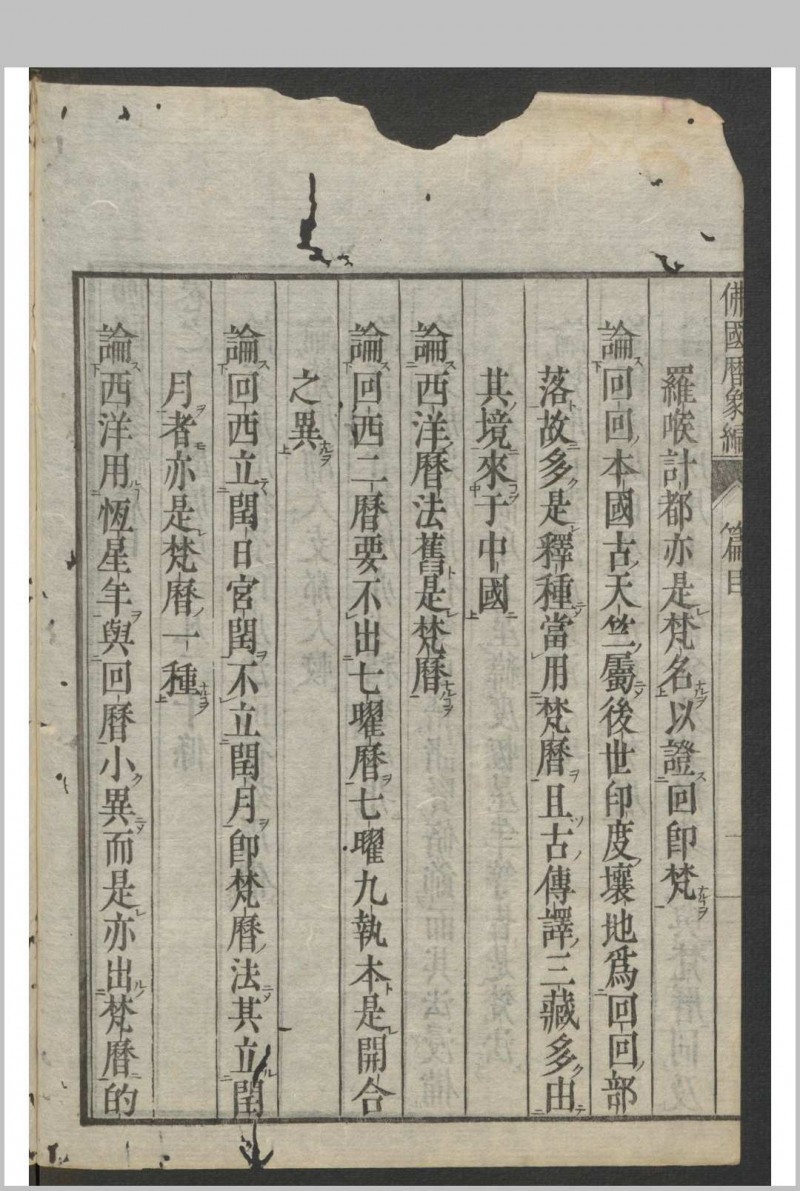 佛國曆象編 篇目
羅睺計都亦是梵名以證回卽梵
論回回本國古天竺屬後世印度壞地爲回回部
落故多是釋種當用梵曆且古傳譯三藏多由
其境來于中國
論西洋曆法舊是梵曆
論回西二曆要不出七曜曆七曜九執本是開合
之異
論回西立閏日宮閏不立閏月卽梵曆法其立閏
月者亦是梵曆一種
論西洋用恆星年與回曆小異而是亦出梵曆的